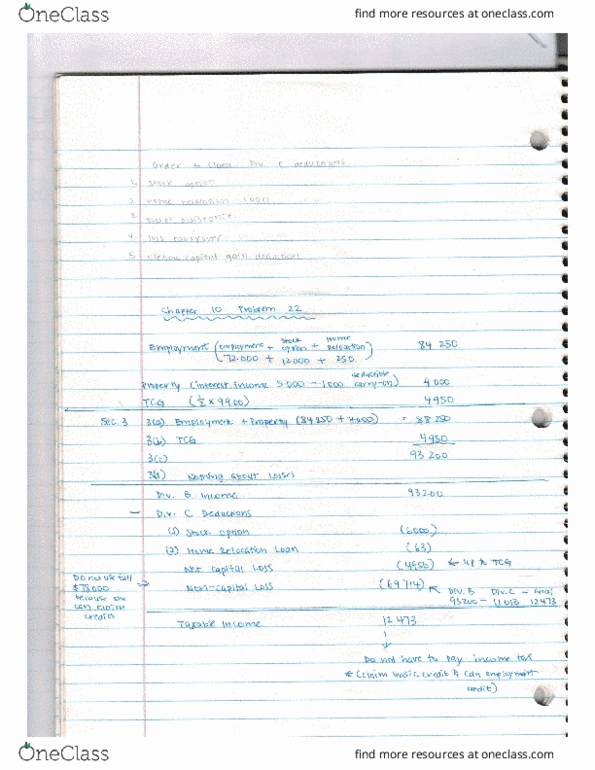 OneClass
find more resources at oneclass.com
Order to claim Div. C deductions
1. stock option
2. home relocation loan
3. social assistance
4. loss carryover
5. lifetime capital gain deduction
Chapter 10 Problem 22
Employment (employment + stock option + Home Relocation) 84 250
72.000 + 12 000 + 250
Property (interest income 5000 - 1000 deductible carry-on) 4000
TCG (1/2 x 9900) 4950
Sec. 3 3(a) Employment + Property (84 250 + 4.000) = 88 250
3(b) TCG 4950
3(c) 93 200
3(d) Nothing about Losses
Div. B Income 93200
- Div. C Deductions
(1) Stock Option (6000)
(2) Home Relocation Loan (63)
Net Capital Loss (4950) ← up to TCG
Do not use full $ 73000 because she can claim credits → Non-Capital Loss (69 714) ↖ Div. B Div. C - Goal
93200 - 11 013 12473
Taxable Income 12 473
Do not have to pay income tax
* (claim basic credit & can employment credit)
OneClass
find more resources at oneclass.com